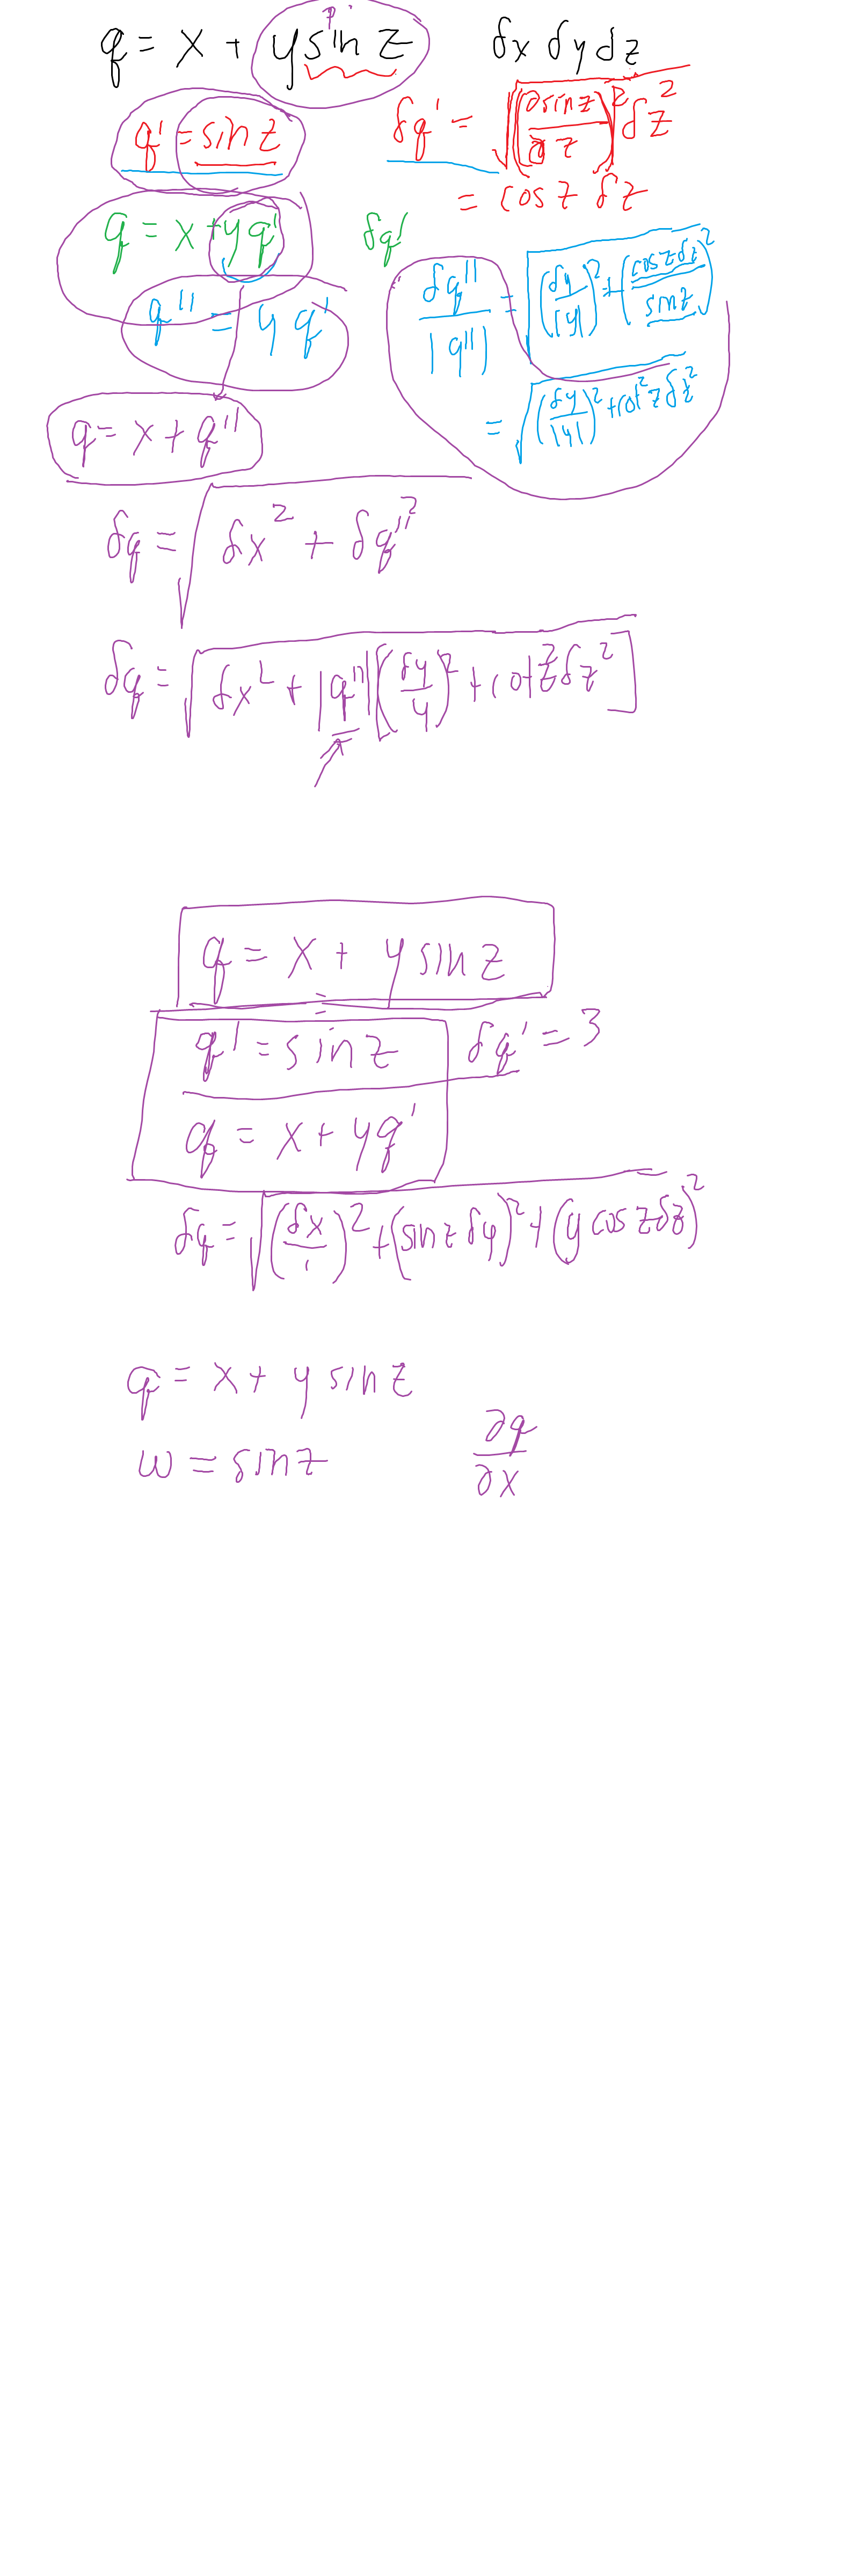 q = x + y sin z   δx δy δz
q' = sin z   δq' = √((∂sin z/∂z)² δz²)
= cos z δz
q = x + yq'   δq'
q'' = y q'   δq''/|q''| = √((δy/|y|)² + (cos z δz/sin z)²)
= √((δy/|y|)² + cot² z δz²)
q = x + q''
δq = √(δx² + δq''²)
δq = √(δx² + |q''|[(δy/y)² + cot² z δz²])
q = x + y sin z
q' = sin z   δq' = 3
q = x + yq'
δq = √((δx/1)² + (sin z δy)² + (y cos z δz)²)
q = x + y sin z
w = sin z   ∂q/∂x